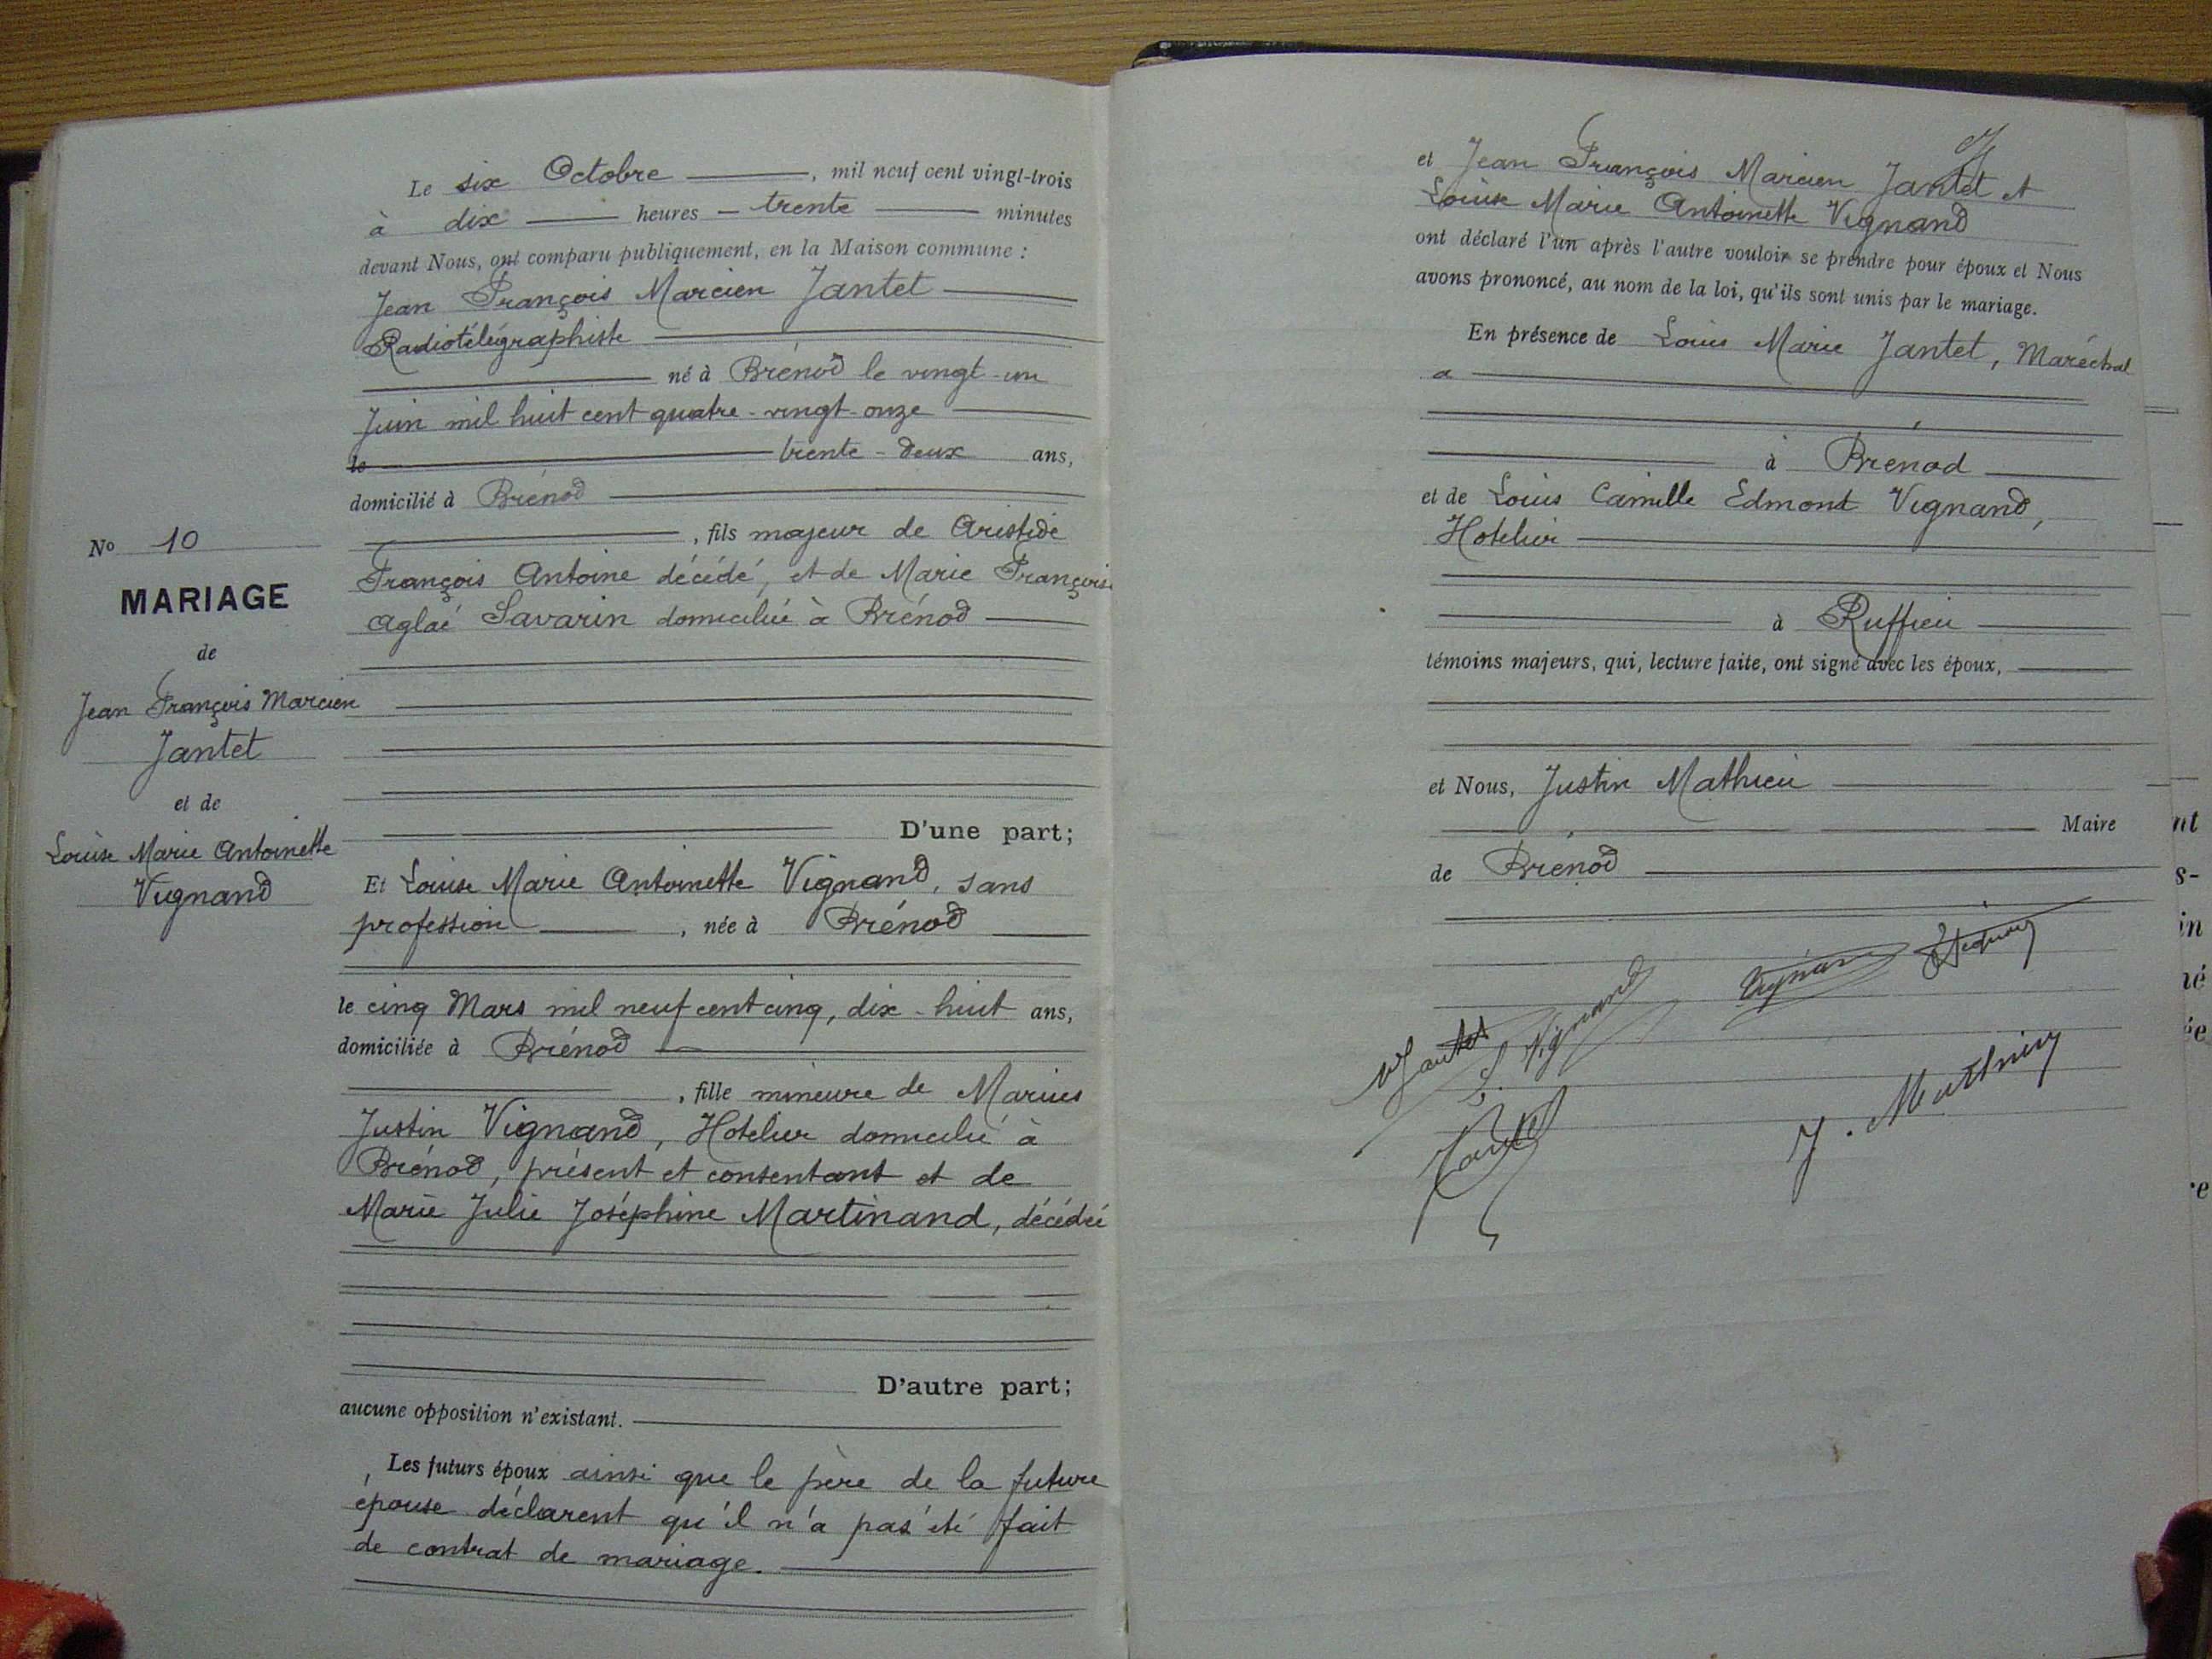 Le six Octobre, mil neuf cent vingt-trois
à dix heures trente minutes
devant Nous, ont comparu publiquement, en la Maison commune :
Jean François Marcien Jantet
Radiotélégraphiste
né à Brénod le vingt-un
Juin mil huit cent quatre-vingt-onze
le trente-deux ans,
domicilié à Brénod
, fils majeur de Aristide
François Antoine décédé, et de Marie Françoise
Aglaé Savarin domiciliée à Brénod
D'une part;
No 10
MARIAGE
de
Jean François Marcien
Jantet
et de
Louise Marie Antoinette
Vignand
Et Louise Marie Antoinette Vignand, sans
profession, née à Brénod
le cinq Mars mil neuf cent cinq, dix-huit ans,
domiciliée à Brénod
, fille mineure de Marius
Justin Vignand, Hotelier domicilié à
Brénod, présent et consentant et de
Marie Julie Joséphine Martinand, décédée
D'autre part;
aucune opposition n'existant.
Les futurs époux ainsi que le père de la future
épouse déclarent qu'il n'a pas été fait
de contrat de mariage.
et Jean François Marcien Jantet et
Louise Marie Antoinette Vignand
ont déclaré l'un après l'autre vouloir se prendre pour époux et Nous
avons prononcé, au nom de la loi, qu'ils sont unis par le mariage.
En présence de Louis Marie Jantet, Maréchal
à Brénod
et de Louis Camille Edmont Vignand,
Hotelier
à Ruffieu
témoins majeurs, qui, lecture faite, ont signé avec les époux,
et Nous, Justin Mathieu
Maire
de Brénod
Jantet
L. Vignand
Vignand
Jantet
J. Mathieu
nt
s-
in
né
re